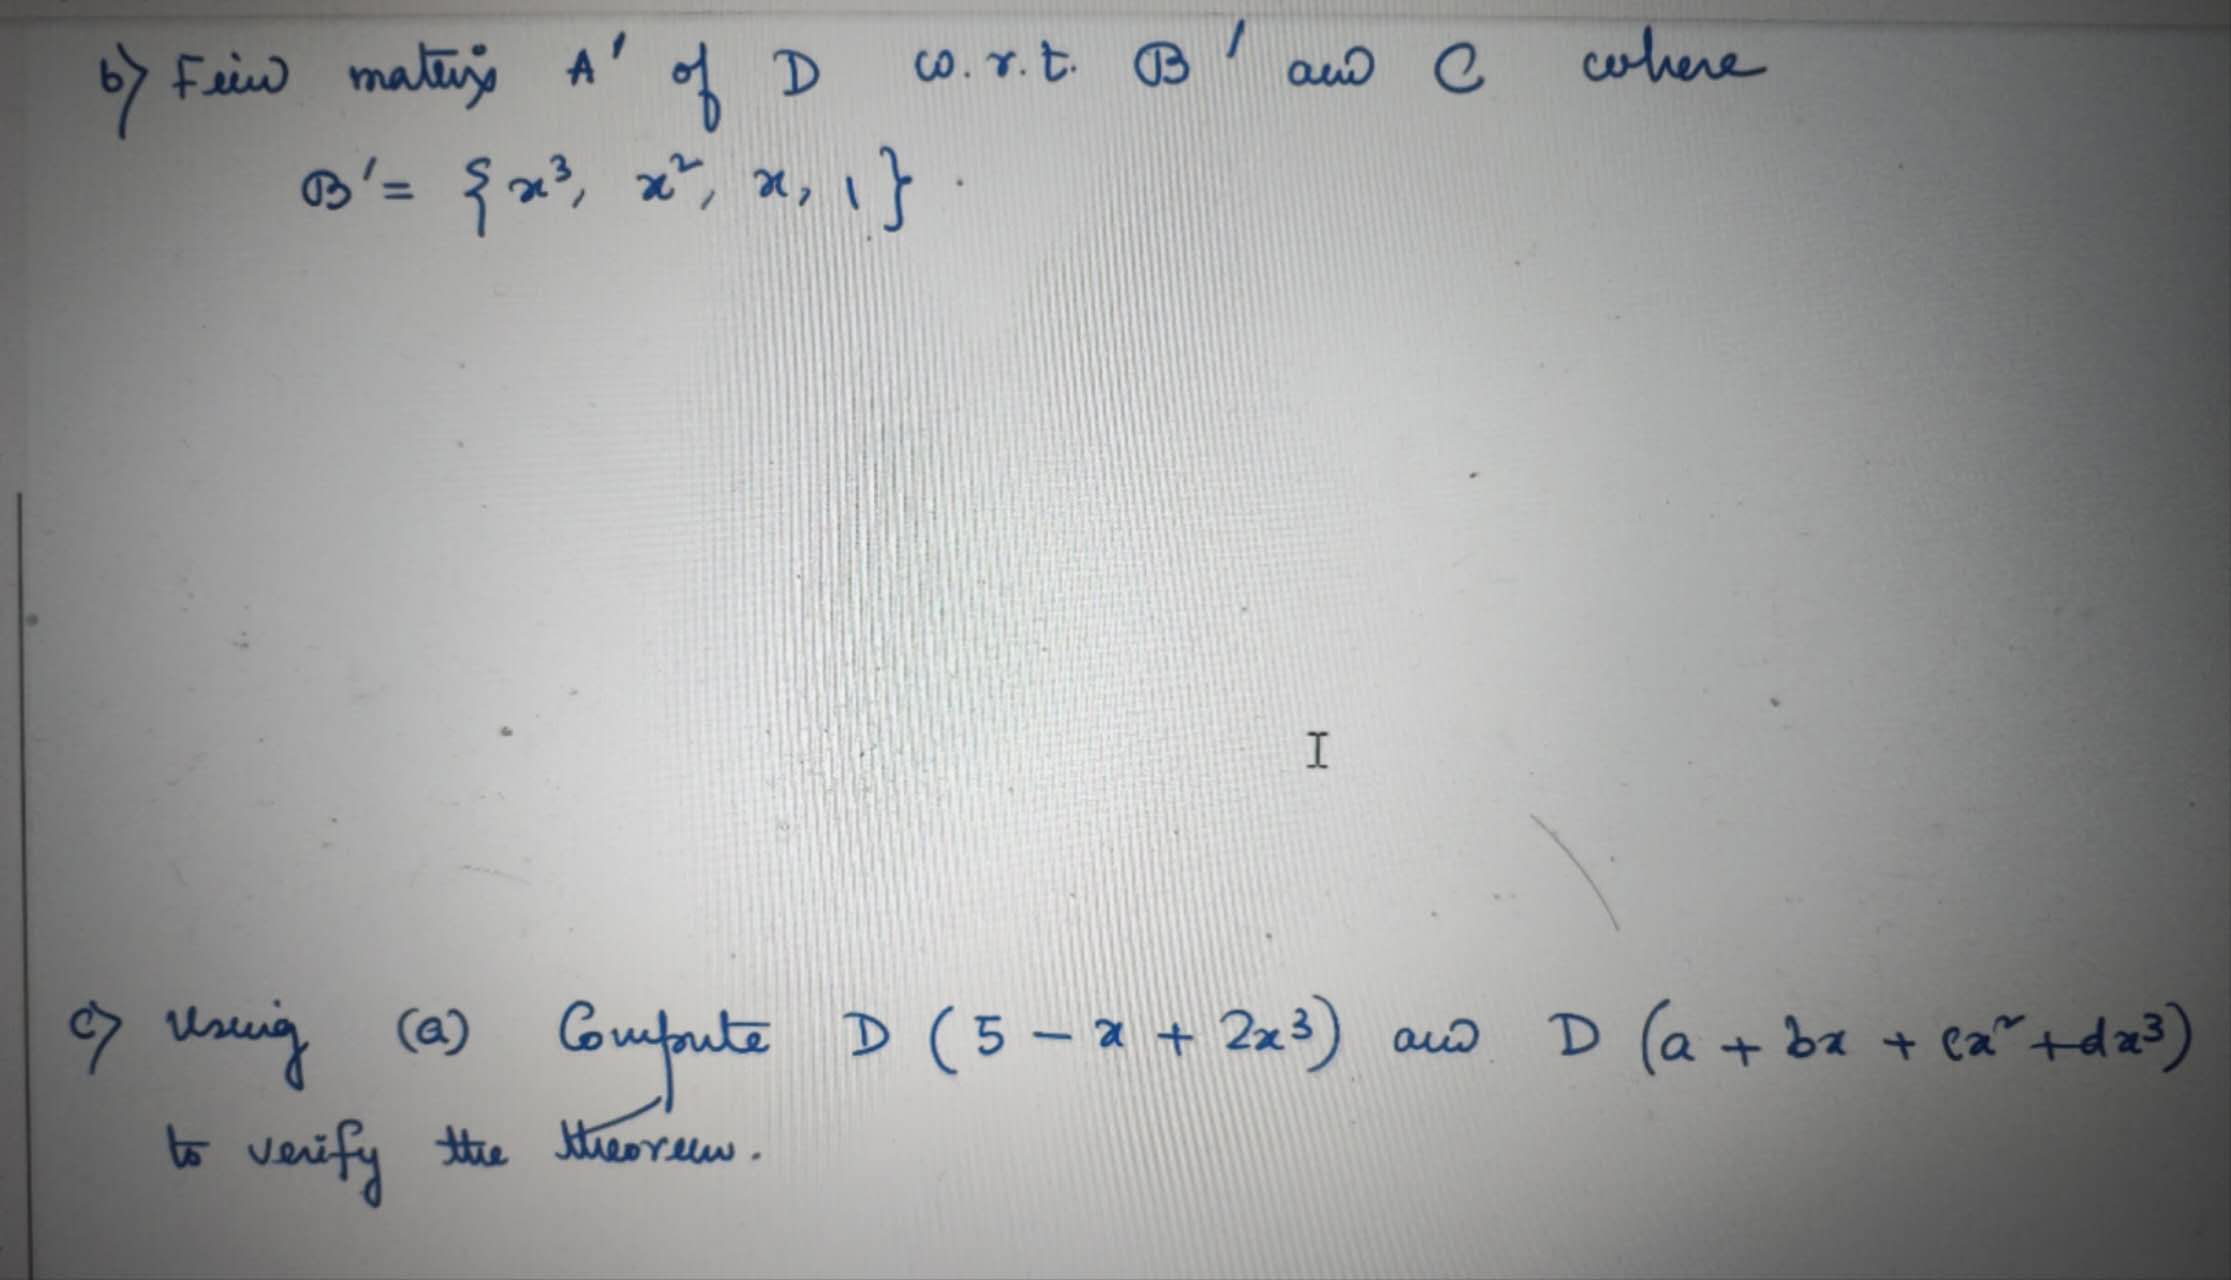 b) Find matrix A' of D w.r.t. B' and C where
B' = {x³, x², x, 1}.
c) Using (a) Compute D (5 - x + 2x³) and D (a + bx + cx² + dx³)
to verify the theorem.